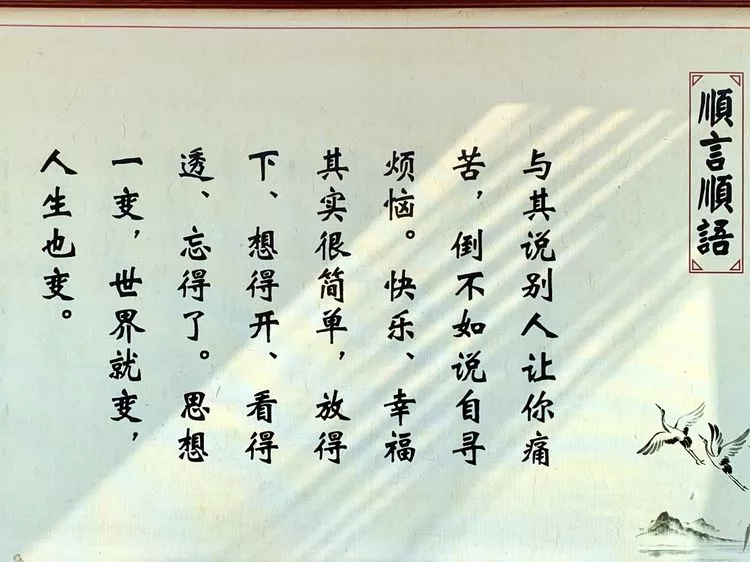 順言順語
与其说别人让你痛
苦，倒不如说自寻
烦恼。快乐、幸福
其实很简单，放得
下、想得开、看得
透、忘得了。思想
一变，世界就变，
人生也变。